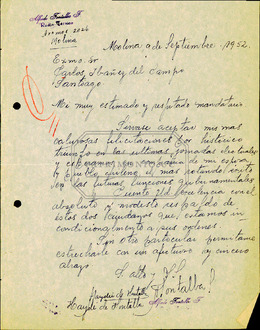 Alfredo Fontalba F.
Molina
Molina 9 de Septiembre 1952.
Excmo. sr
Carlos Ibáñez del Campo
Santiago.
Mi muy estimado y respetado mandatario
Sírvase aceptar mis mas
calurosas felicitaciones por historico
triunfo en las ultimas jornadas electorales
y esperamos en compañia de mi esposa
y Pueblo chileno el mas rotundo exito
en las futuras funciones gubernamentales
Cuente Ud. Excelencia con el
absoluto y modesto respaldo de
estos dos ciudadanos que estamos in-
condicionalmente a sus ordenes
Sin otro particular permitame
estrecharle con un afectuoso y sincero
abrazo
Haydée de Fontalba
Haydée de Fontalba
Fontalba
Alfredo Fontalba F.